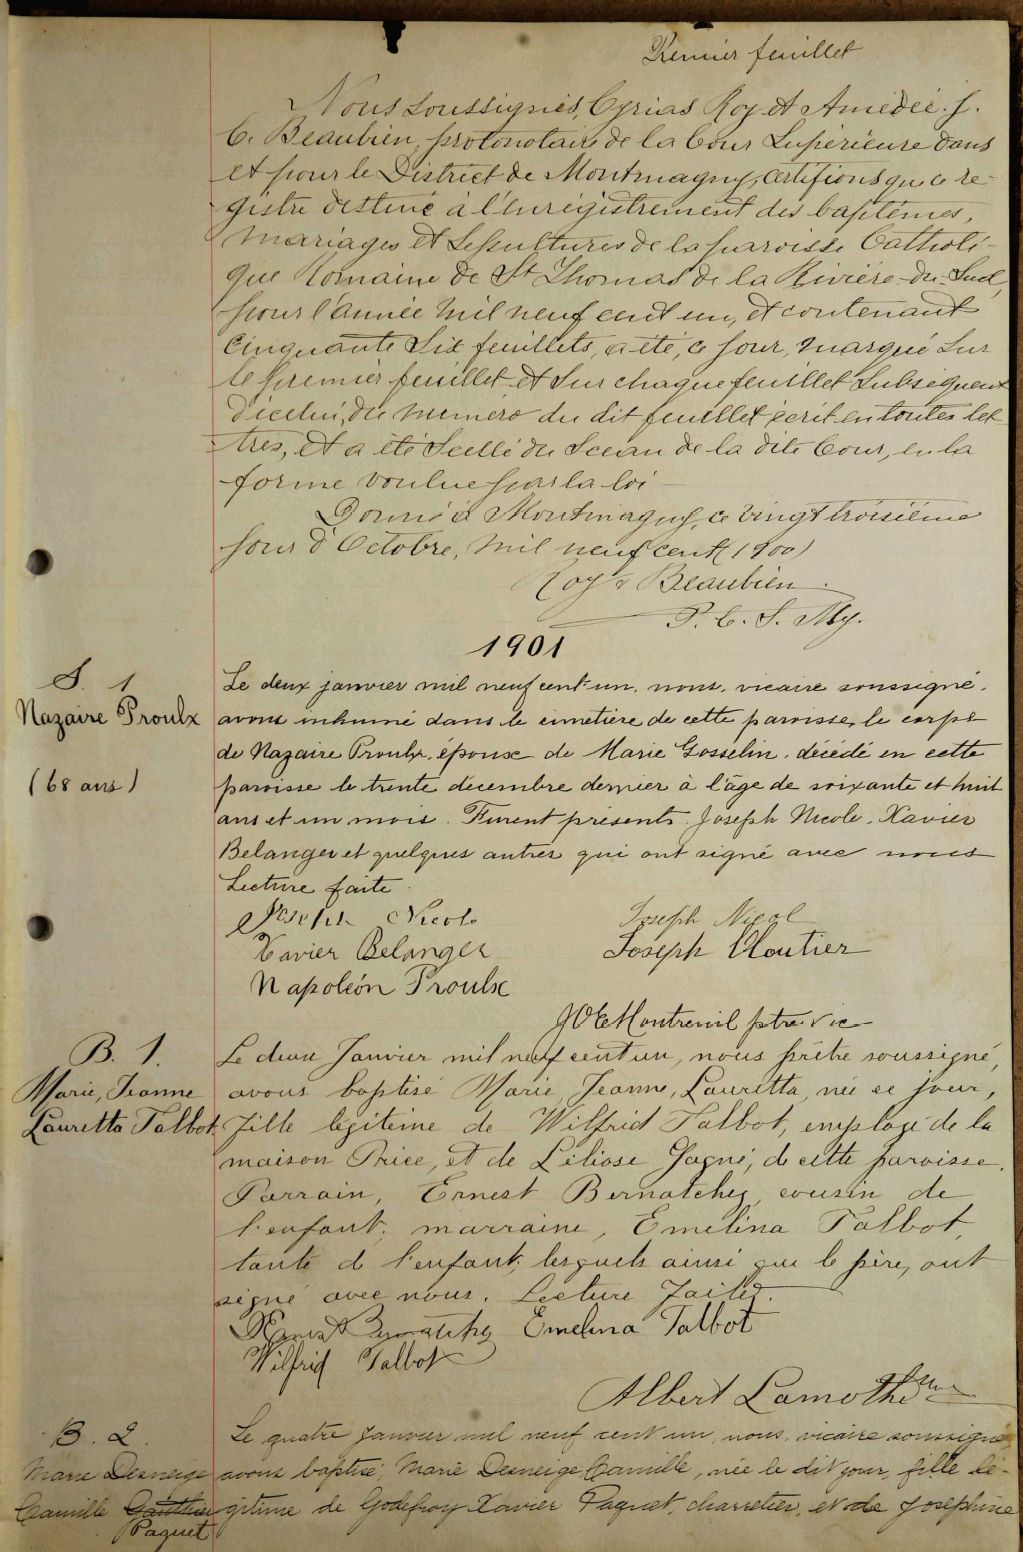 Premier feuillet
Nous soussignés, Cyrias Roy et Amédée. J.
C. Beaubien, protonotaire de la Cour Supérieure dans
et pour le District de Montmagny, certifions que ce re-
gistre destiné à l'enregistrement des baptêmes,
mariages et sépultures de la paroisse Catholi-
que Romaine de St Thomas de la Rivière-du-Sud,
pour l'année mil neuf cent un, et contenant
cinquante six feuillets, a été, ce jour, marqué sur
le premier feuillet et sur chaque feuillet subséquent
d'icelui, du numéro du dit feuillet écrit en toutes let-
tres, et a été scellé du sceau de la dite Cour, en la
forme voulue par la loi
Donné à Montmagny, ce vingt troisième
jour d'Octobre, mil neuf cent (1900)
Roy & Beaubien
P. C. S. My.
1901
S. 1
Nazaire Proulx
(68 ans)
Le deux janvier mil neuf cent un, nous, vicaire soussigné,
avons inhumé dans le cimetière de cette paroisse, le corps
de Nazaire Proulx, époux de Marie Gosselin, décédé en cette
paroisse le trente décembre dernier à l'âge de soixante et huit
ans et un mois. Furent présents. Joseph Nicole, Xavier
Belanger et quelques autres qui ont signé avec nous
Lecture faite.
Joseph Nicole Joseph Nicol
Xavier Belanger Joseph Cloutier
Napoléon Proulx
J O E Montreuil ptre vic
B. 1.
Marie, Jeanne
Lauretta Talbot.
Le deux Janvier mil neuf cent un, nous prêtre soussigné,
avons baptisé Marie, Jeanne, Lauretta, née ce jour,
fille légitime de Wilfrid Talbot, employé de la
maison Price, et de Léliose Gagné, de cette paroisse.
Parrain, Ernest Bernatchez, cousin de
l'enfant; marraine, Emelina Talbot,
tante de l'enfant; lesquels ainsi que le père, ont
signé avec nous. Lecture faite.
Ernest Bernatchez Emelina Talbot
Wilfrid Talbot
Albert Lamothe
B. 2.
Marie Desneige
Camille Gauthier
Paquet
Le quatre janvier mil neuf cent un, nous, vicaire soussigné,
avons baptisé, Marie Desneige Camille, née le dit jour, fille lé-
gitime de Godefroy Xavier Paquet, charretier, et de Josephine